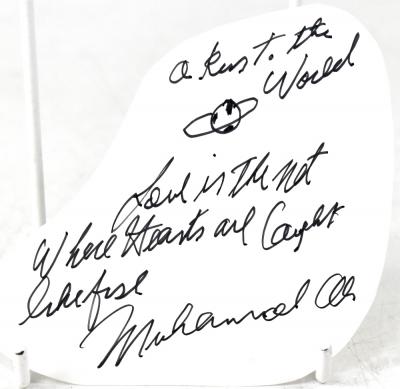 a Kiss to the
World
Love is The net
Where Hearts are Caught
like fish
Muhammad Ali